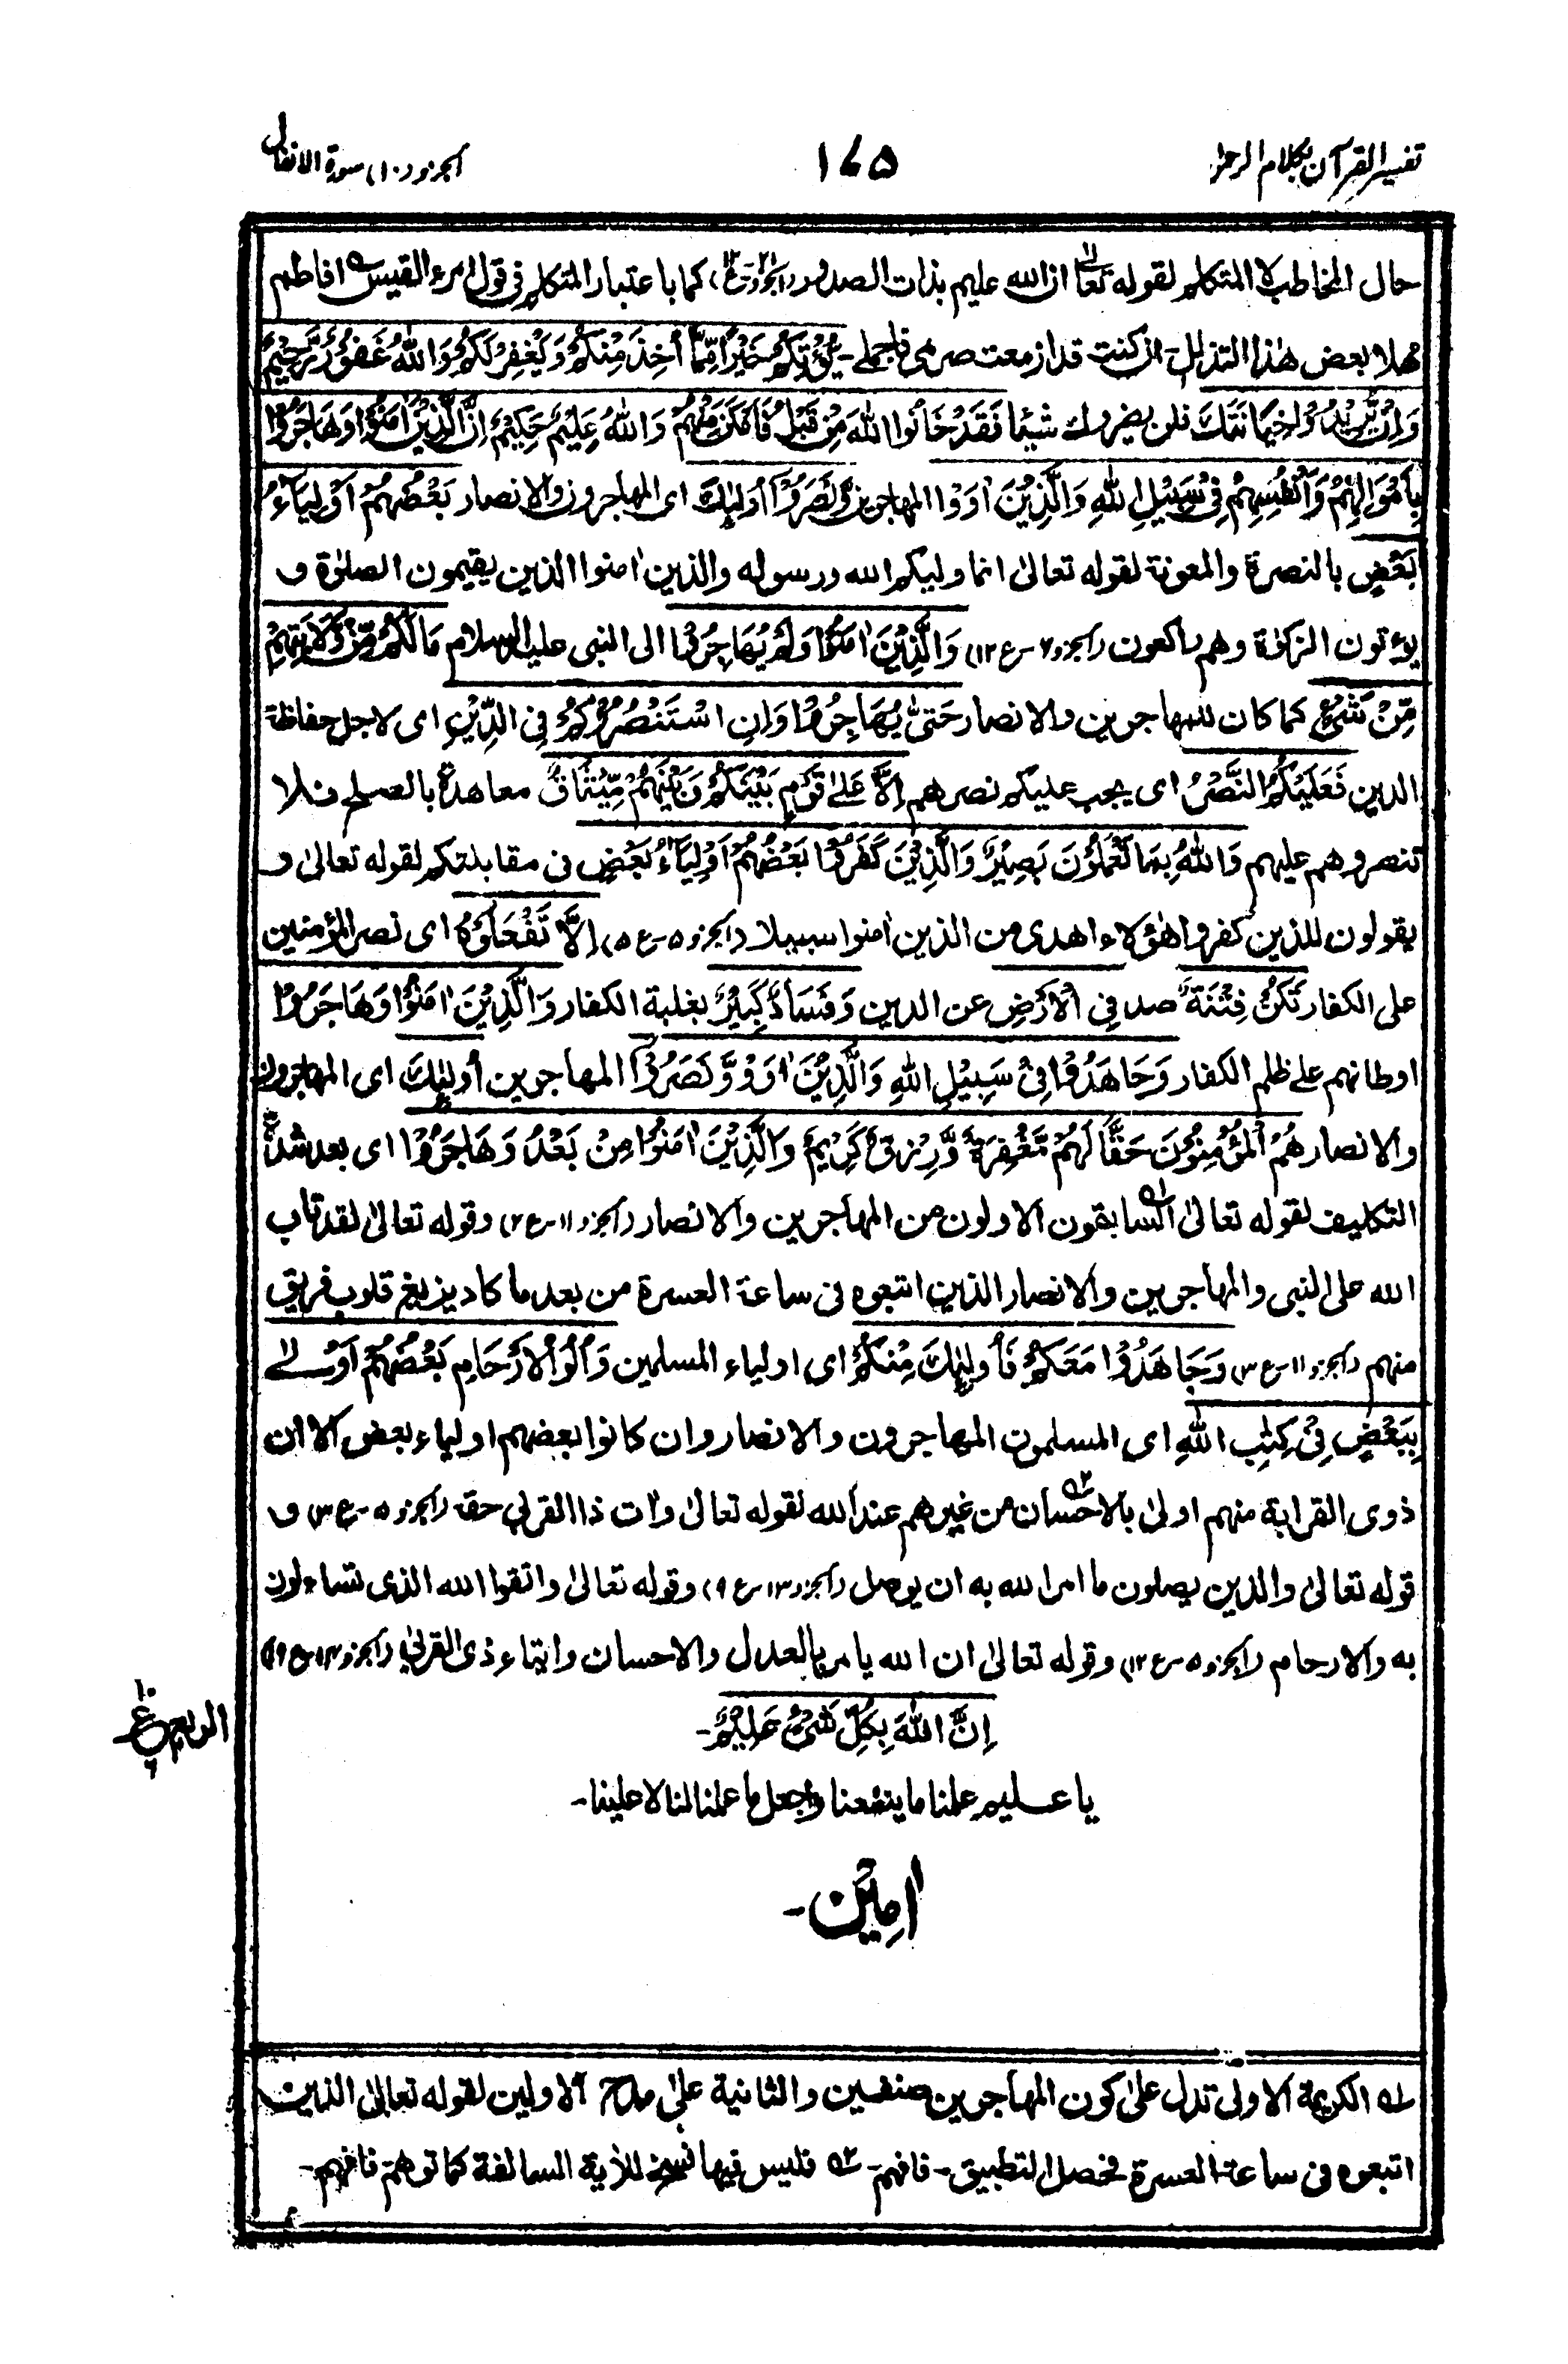 تفسير القرآن بكلام الرحمن
١٧٥
الجزو (١٠) سورة الانفال
حال المخاطب لا المتكلم لقوله تعالى ان الله عليم بذات الصدور كما باعتبار المتكلم فى قول امرء القيس افاطم
مهلا بعض هذا التدلل - ان كنت قد ازمعت صرمى فاجملى - يُّؤْتِكُمْ خَيْرًا مِّمَّا أُخِذَ مِنْكُمْ وَيَغْفِرْ لَكُمْ وَاللّٰهُ غَفُوْرٌ رَّحِيْمٌ
وَاِنْ يُّرِيْدُوْا خِيَانَتَكَ فلن يضروك شيئا فَقَدْ خَانُوا اللّٰهَ مِنْ قَبْلُ فَاَمْكَنَ مِنْهُمْ وَاللّٰهُ عَلِيْمٌ حَكِيْمٌ اِنَّ الَّذِيْنَ اٰمَنُوْا وَهَاجَرُوْا
بِاَمْوَالِهِمْ وَاَنْفُسِهِمْ فِىْ سَبِيْلِ اللّٰهِ وَالَّذِيْنَ اٰوَوْا المهاجرين وَّنَصَرُوْا اُولٰٓئِكَ اى المهاجرون والانصار بَعْضُهُمْ اَوْلِيَآءُ
بَعْضٍ بالنصرة والمعونة لقوله تعالىٰ انما وليكم الله ورسوله والذين اٰمنوا الذين يقيمون الصلوٰة و
يؤتون الزكوٰة وهم راكعون (الجزو ٦ - ع ١٢) وَالَّذِيْنَ اٰمَنُوْا وَلَمْ يُهَاجِرُوْا الى النبى عليه السلام مَا لَكُمْ مِّنْ وَّلَايَتِهِمْ
مِّنْ شَىْءٍ كما كان للمهاجرين والانصار حَتّٰى يُهَاجِرُوْا وَاِنِ اسْتَنْصَرُوْكُمْ فِى الدِّيْنِ اى لاجل حفاظة
الدين فَعَلَيْكُمُ النَّصْرُ اى يجب عليكم نصرهم اِلَّا عَلٰى قَوْمٍ بَيْنَكُمْ وَبَيْنَهُمْ مِّيْثَاقٌ معاهدة بالصلح فلا
تنصروهم عليهم وَاللّٰهُ بِمَا تَعْمَلُوْنَ بَصِيْرٌ وَالَّذِيْنَ كَفَرُوْا بَعْضُهُمْ اَوْلِيَآءُ بَعْضٍ فى مقابلتكم لقوله تعالىٰ و
يقولون للذين كفروا هٰؤلاء اهدى من الذين اٰمنوا سبيلا (الجزو ٥ - ع ٥) اِلَّا تَفْعَلُوْهُ اى نصر المؤمنين
على الكفار تَكُنْ فِتْنَةٌ صد فِى الْاَرْضِ عن الدين وَفَسَادٌ كَبِيْرٌ بغلبة الكفار وَالَّذِيْنَ اٰمَنُوْا وَهَاجَرُوْا
اوطانهم على ظلم الكفار وَجَاهَدُوْا فِىْ سَبِيْلِ اللّٰهِ وَالَّذِيْنَ اٰوَوْا وَّنَصَرُوْا المهاجرين اُولٰٓئِكَ اى المهاجرون
والانصار هُمُ الْمُؤْمِنُوْنَ حَقًّا لَهُمْ مَّغْفِرَةٌ وَّرِزْقٌ كَرِيْمٌ وَالَّذِيْنَ اٰمَنُوْا مِنْ بَعْدُ وَهَاجَرُوْا اى بعد شدة
التكليف لقوله تعالىٰ السابقون الاولون من المهاجرين والانصار (الجزو ١١ - ع ٢) وقوله تعالىٰ لقد تاب
الله على النبى والمهاجرين والانصار الذين اتبعوه فى ساعة العسرة من بعد ما كاد يزيغ قلوب فريق
منهم (الجزو ١١ - ع ٣) وَجَاهَدُوْا مَعَكُمْ فَاُولٰٓئِكَ مِنْكُمْ اى اولياء المسلمين وَاُولُوا الْاَرْحَامِ بَعْضُهُمْ اَوْلٰى
بِبَعْضٍ فِىْ كِتٰبِ اللّٰهِ اى المسلمون المهاجرون والانصار وان كانوا بعضهم اولياء بعض الا ان
ذوى القرابة منهم اولىٰ بالاحسان من غيرهم عند الله لقوله تعالىٰ واٰت ذا القربىٰ حقه (الجزو ١٥ - ع ٣) و
قوله تعالىٰ والذين يصلون ما امر الله به ان يوصل (الجزو ١٣ - ع ٩) وقوله تعالىٰ واتقوا الله الذى تساءلون
به والارحام وقوله تعالىٰ ان الله يامر بالعدل والاحسان وايتاء ذى القربىٰ (الجزو ١٤ - ع ١٩)
اِنَّ اللّٰهَ بِكُلِّ شَىْءٍ عَلِيْمٌ -
يا عليم علمنا ما ينفعنا واجعل ما علمنا لنا لا علينا -
اٰمِيْن -
لـه الكريمة الاولى تدل علىٰ كون المهاجرين صنفين والثانية علىٰ مدح الاولين لقوله تعالىٰ الذين
اتبعوه فى ساعة العسرة فحصل التطبيق - فافهم - ٢ـه فليس فيها نسخ للاٰية السالفة كما توهم فافهم -